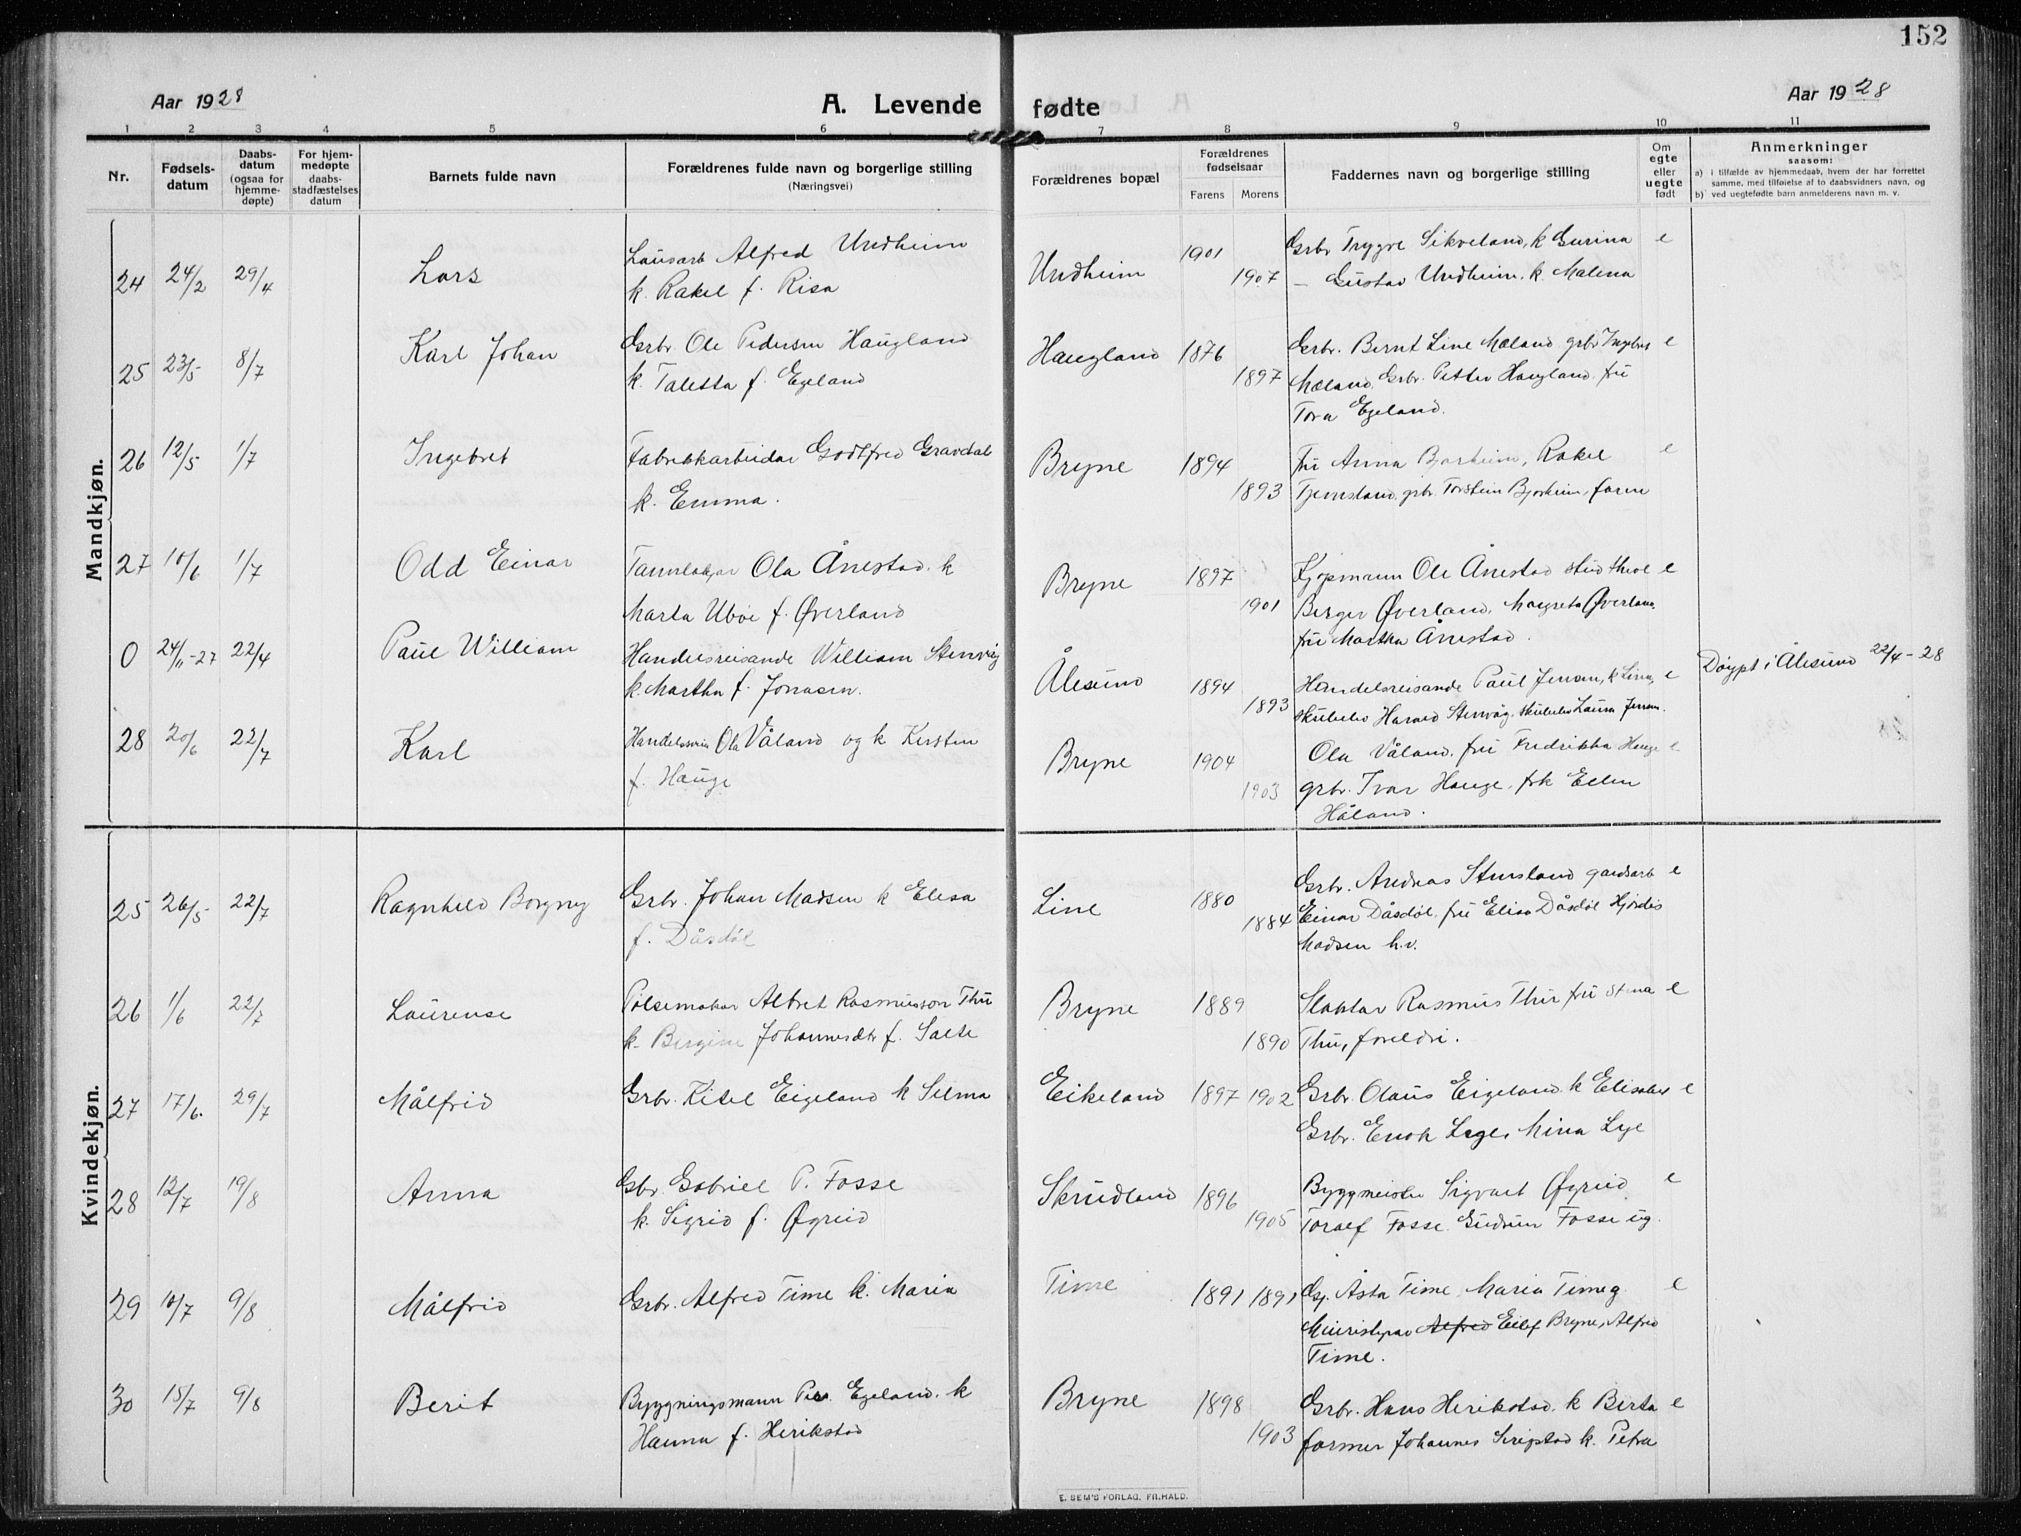 152
Aar 1928
A. Levende fødte
Aar 1928
1 2 3 4 5 6 7 8 9 10 11
Nr.
Fødsels-
datum
Daabs-
datum
(ogsaa for
hjemme-
døpte)
For hjem-
medøpte
daabs-
stadfæstelses
datum
Barnets fulde navn
Forældrenes fulde navn og borgerlige stilling
(Næringsvei)
Forældrenes bopæl
Forældrenes
fødselsaar
Farens Morens
Faddernes navn og borgerlige stilling
Om
egte
eller
uegte
født
Anmerkninger
saasom:
a) i tilfælde av hjemmedaab, hvem der har forrettet
samme, med tilføielse af to daabsvidners navn, og
b) ved uegtefødte barn anmelderens navn m. v.
Mandkjøn.
24 24/2 29/4 Lars
Lausarb Alfred Undheim
k. Rakel f. Risa
Undheim 1901 1907
Grbr Trygve Sikveland, k Gurina e
– Gustav Undheim, k. Malena
25 23/5 8/7 Karl Johan
Grbr. Ole Pedersen Haugland
k. Taletta f. Egeland
Haugland 1876 1897
Grbr. Bernt Line Mæland grbr Ingebret e
Mæland, Grbr. Petter Haugland, fru
Tora Egeland.
26 12/5 1/7 Ingebret
Fabrikkarbeidar Godtfred Gravdal
k. Emma.
Bryne 1894 1893
Fru Anna Bjorheim, Rakel e
Tjemsland, grbr. Torstein Bjorheim, faren
27 10/6 1/7 Odd Einar
Tannlækjar Ola Ånestad. k
Marta Ubøe f. Øverland
Bryne 1897 1901
Kjøpmann Ole Ånestad stud theol e
Berger Øverland, Magreta Øverland
fru Martha Ånestad.
0 24/11-27 22/4 Paul William
Handelsreisande William Stenvåg
k. Martha f. Jonasen.
Ålesund 1894 1893
Handelsreisande Paul Jensen, k Lina, e
skuleelev Harald Stenvåg, skuleelev Laura Jensen.
Døypt i Ålesund 22/4-28
28 20/6 22/7 Karl
Handelsreis Ola Våland og k Kirsten
f. Hauge
Bryne 1904 1903
Ola Våland, fru Fredrikka Hauge e
grbr. Ivar Hauge, frk Ellen
Håland.
Kvindekjøn.
25 26/5 22/7 Ragnhild Borgny
Grbr. Johan Madsen k Elisa
f. Dåsdøl
Line 1880 1884
Grbr. Andreas Stensland gardsarb e
Einar Dåsdøl, fru Elisa Dåsdøl Hjørdis
Madsen h.v.
26 1/6 22/7 Laurense
Pølsemakar Albret Rasmusson Thu
k. Bergine Johannesdtr f. Salte
Bryne 1889 1890
Slaktar Rasmus Thu, fru Stina e
Thu, foreldri.
27 17/6. 29/7 Målfrid
Grbr. Kitel Eigeland k Selma
Eikeland 1897 1902
Grbr. Olaus Eigeland k Elisabet e
Grbr. Enok Lye, Mina Lye
28 12/7 19/8 Anna
Gbr. Gabriel P. Fosse
k. Sigrid f. Øgreid
Skrudland 1896 1905
Byggmeister Sigvart Øgreid e
Toralf Fosse, Gudrun Fosse ug.
29 10/7 9/8 Målfrid
Grbr. Alfred Time k. Maria
Time 1891 1891
Gj. Åsta Time, Maria Time g e
Alfred Eilef Bryne, Alfred
Time.
30 15/7 9/8 Berit
Byggningsmann Per Egeland. k
Hanna f. Herikstad
Bryne 1898 1903
Grbr. Hans Herikstad. k Berta e
farmer Johannes k. Petra
E. SEM'S FORLAG, FR.HALD.